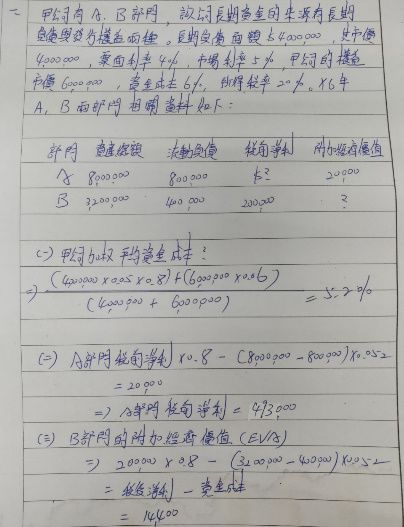 二 甲公司有A、B部門，該公司長期資金的來源有長期
負債與股份權益兩種。長期負債面額為4,000,000，其市價
4,000,000，票面利率4%，市場利率5%，甲公司的權益
市價6,000,000，資金成本6%，所得稅率20%。X6年
A、B兩部門相關資料如下：
部門 資產總額 流動負債 稅前淨利 附加經濟價值
A 8,000,000 800,000 ? 20,000
B 3,200,000 400,000 200,000 ?
(一) 甲公司加权平均資金成本？
⇒ (4,000,000×0.05×0.8)+(6,000,000×0.06)
(4,000,000+6,000,000) = 5.2%
(二) A部門稅前淨利×0.8-(8,000,000-800,000)×0.052
=20,000
⇒ A部門稅前淨利=493,000
(三) B部門的附加經濟價值(EVA)
⇒ 200,000×0.8-(3,200,000-400,000)×0.052
= 稅後淨利-資金成本
= 14,400